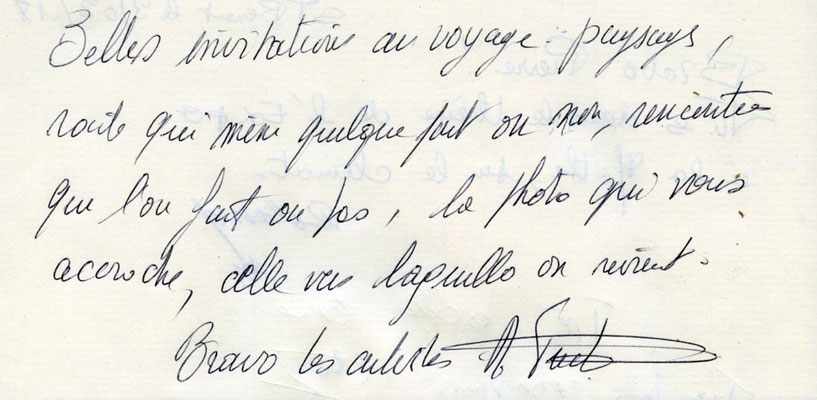 Belles invitations au voyage paysages,
route qui mène quelque part ou non, rencontre
que l'on fait ou pas, la photo qui vous
accroche, celle vers laquelle on revient.
Bravo les artistes